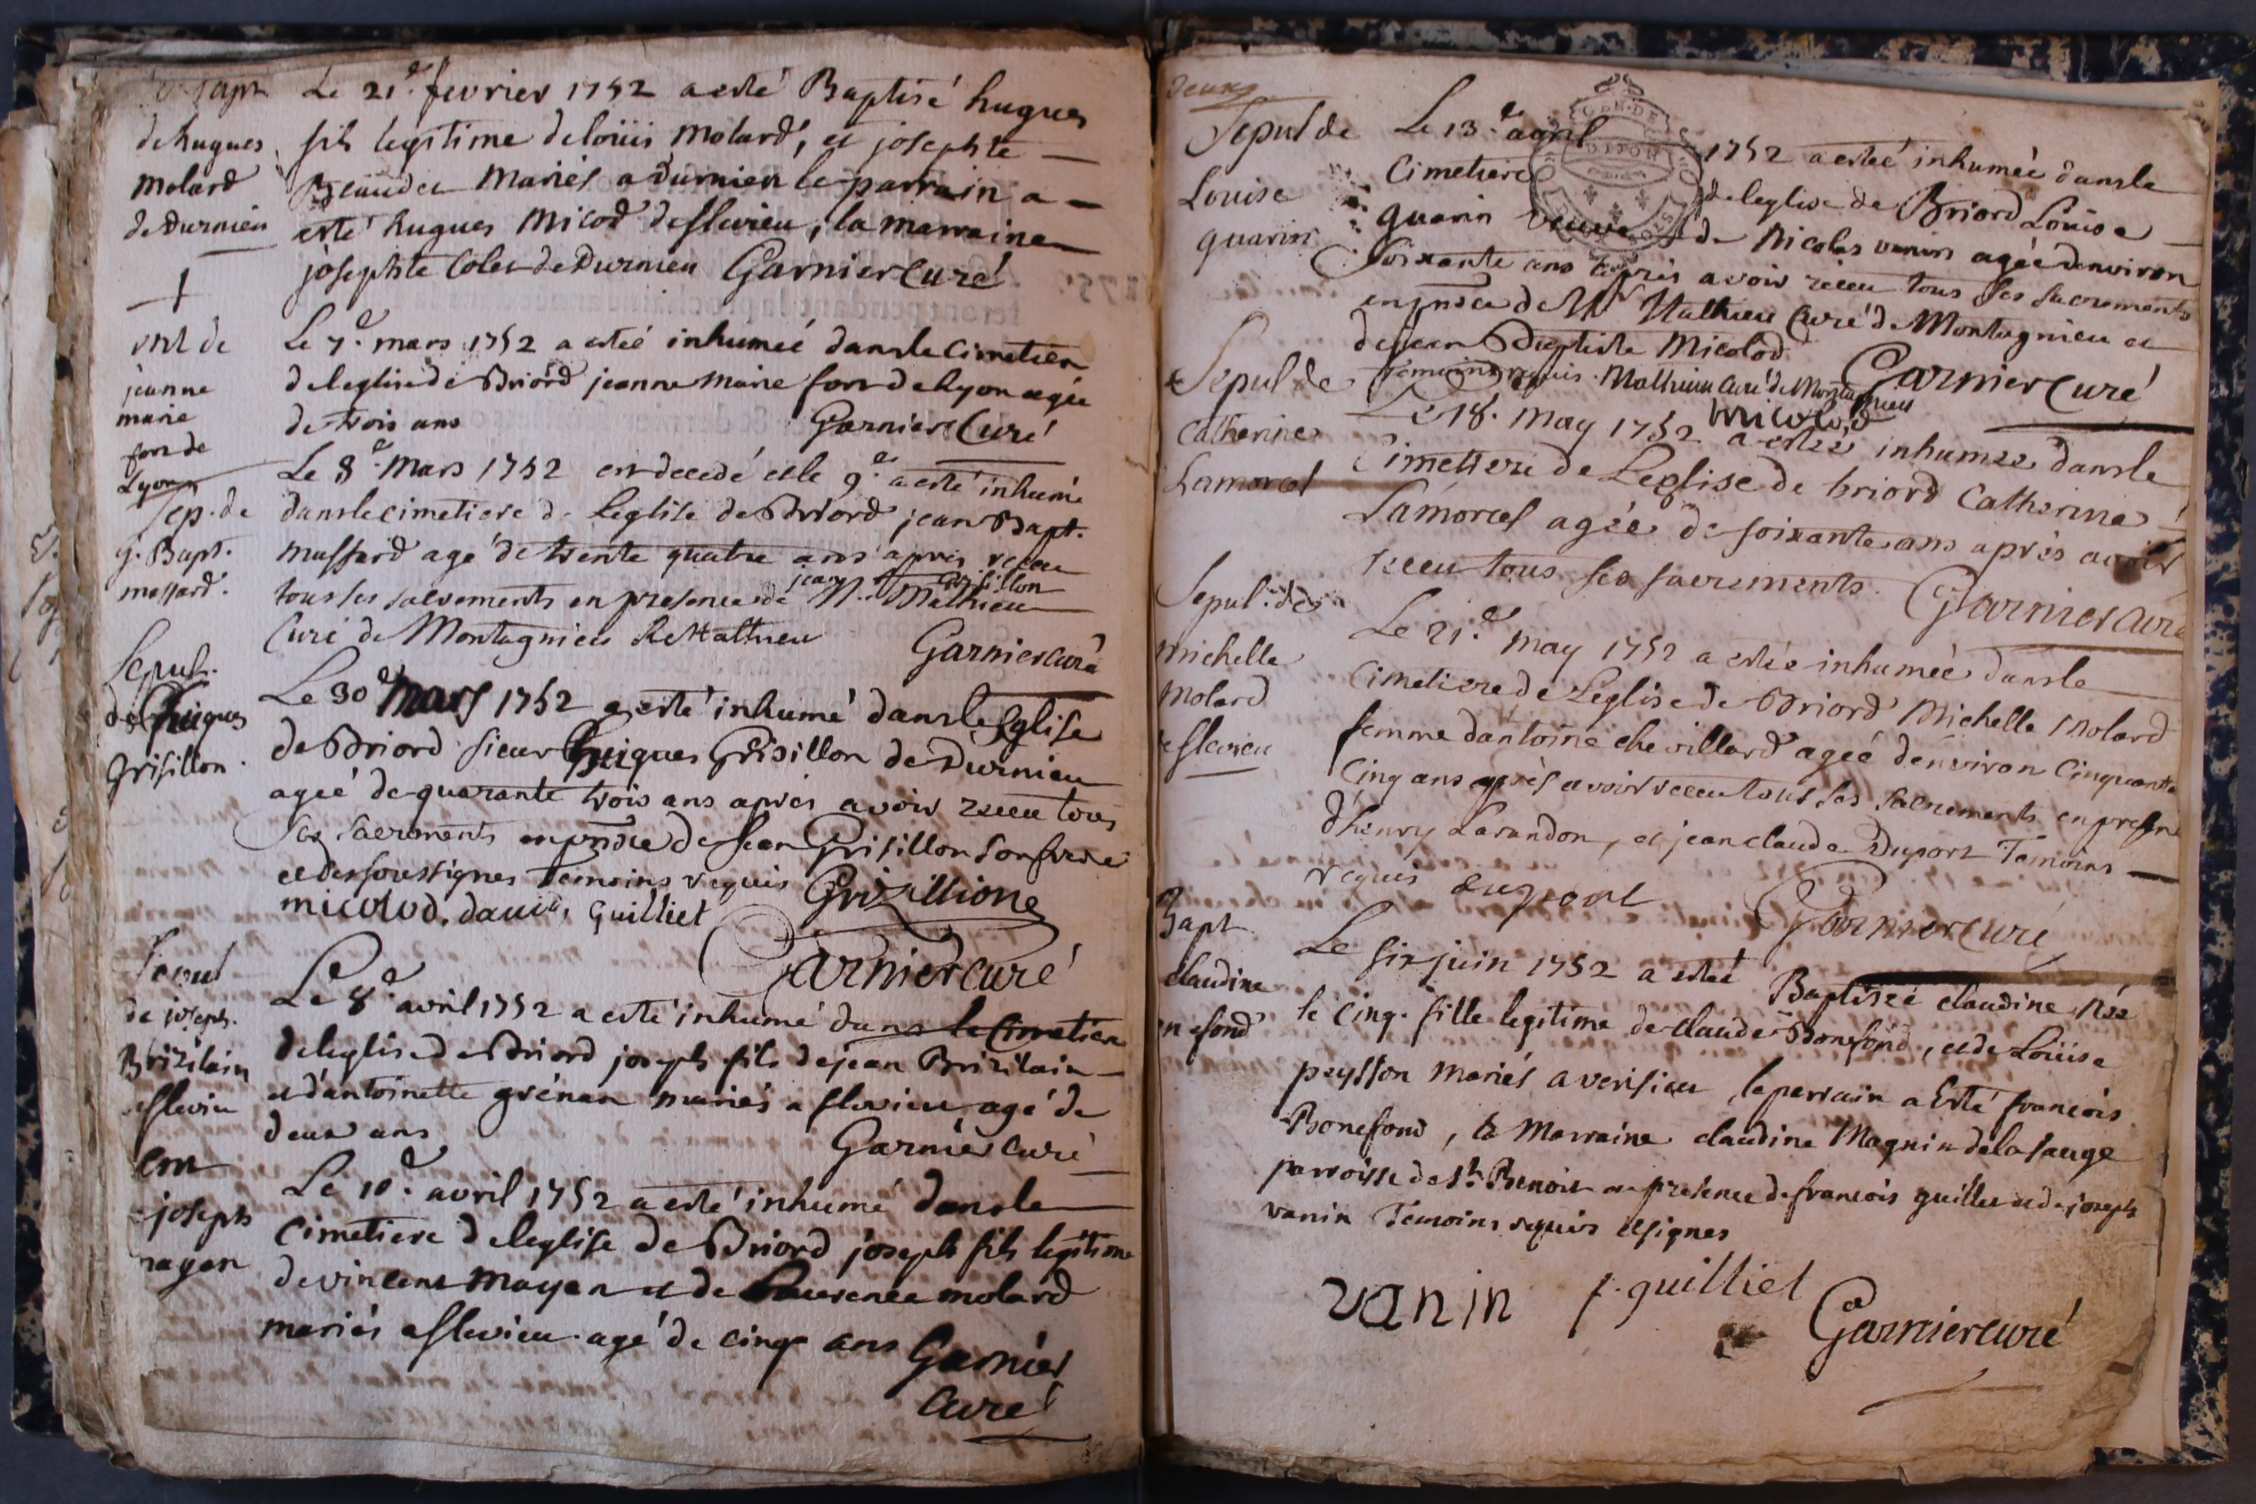 Bapt
de hugues
molard
de Durnieu
Le 21e. fevrier 1752 a esté Baptisé hugues
fils legitime de loüis molard, et josephte
Beaudet mariés a Durnieu le parrain a
esté hugues Micod de flevieu, la marraine
josephte Colet de Durnieu Garnier Curé
jeanne
marie
fort de
Lyon
Le 7e. mars 1752 a estée inhumée dans le Cimetiere
de leglise de Briord jeanne marie fort de Lyon agée
de trois ans Garnier Curé
Sep. de
j. Bapt.
massard.
Le 8e. Mars 1752 est decedé et le 9e a esté inhumé
dans le cimetiere de Leglise de Briord jean Bapt.
massard agé de trente quatre ans apres receu
tous ses sacrements en presence de jean grisillon M. Mathieu
Curé de Montagnieu Mathieu Garnier curé
Sepul.
de hugues
Grisillon.
Le 30e Mars 1752 a esté inhumé dans le Eglise
de Briord sieur hugues Grisillon de Durnieu
ageé de quarante trois ans apres avoir receu tous
Ses sacrements en pnce de Jean Grisillon son frere
et des soussignes temoins requis Grizillione
micolod. david, Guilliet
Garnier curé
Sepul
de joseph.
Brizilain
flevieu
Le 8e. avril 1752 a esté inhumé dans le Cimetiere
de leglise de Briord joseph fils de jean Brizilain
et d'antoinette grénan mariés a flevieu agé de
deux ans Garnier curé
joseph
mayen
Le 10e. avril 1752 a esté inhumé dans le
Cimetiere de leglise de Briord joseph fils legitime
de vincent mayen et de Laurence molard
mariés a flevieu agé de cinq ans Garnier
Curé
deux
Sepul de
Louise
quarin
Le 13.e avril 1752 a estée inhumée dans le
Cimetiere de leglise de Briord Louise
quarin veuve de Nicolas vanin agée denviron
Soixante ans apres avoir receu tous ses sacrements
en pnce de Mr Mathieu Curé de Montagnieu et
de jean Baptiste Micolod
Temoins requis. Mathieu Curé de Montagnieu Garnier Curé
micolod
Sepul de
Catherine
Lamorcel
Le 18. May 1752 a estée inhumée dans le
Cimetiere de Leglise de briord Catherine
Lamorcel agée de soixante ans après avoir
receu tous ses sacrements. Garnier Curé
Sepul. de
michelle
Molard
flevieu
Le 21.e may 1752 a estée inhumée dans le
Cimetiere de Leglise de Briord Michelle Molard
femme dantoine chevillard ageé denviron Cinquante
Cinq ans après avoir receu tous ses sacrements en presence
d'henry Larandon, et jean claude Duport Temoins
requis duport Garnier curé
Bapt
claudine
Le six juin 1752 a esteé Baptiseé claudine Née
le Cinq. fille legitime de claude Bonefond, et de Loüise
peysson mariés a verisieu, le parrain a Esté francois
Bonefond, la Marraine claudine Magnin de la sauge
parroisse de St. Benoit en presence de francois guilliet et de joseph
vanin Temoins requis et signes
vanin f. guilliet
Garnier curé